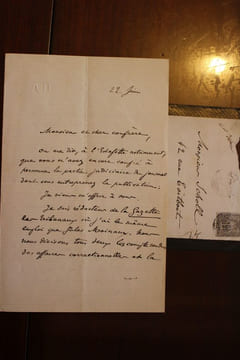 22 Juin
Monsieur et cher confrère,
On me dit, à l'Estafette notamment,
que vous n'avez encore confié à
personne la partie judiciaire du journal
dont vous entreprenez la publication.
Je viens m'offrir à vous.
Je suis rédacteur de la Gazette
des Tribunaux où j'ai le même
emploi que Jules Moinaux. Nous
nous divisons tous deux les comptes rendus
des affaires correctionnelles et la
Monsieur Scholl
rue Taitbout